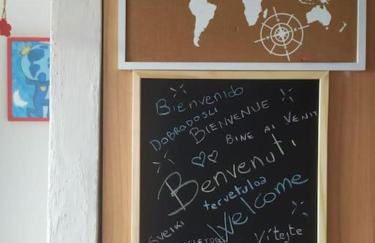 Bienvenido
DOBRODOSLI
BIENVENUE
BINE AI VENIT
Benvenuti
tervetuloa
Welcome
Sveiki
Vítejte